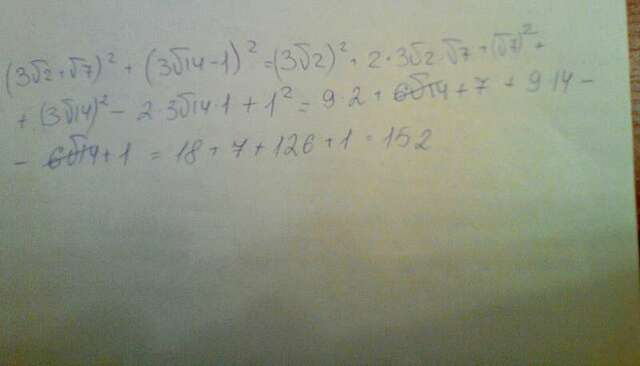 (3√2+√7)² + (3√14-1)² = (3√2)² + 2·3√2·√7 + (√7)² +
+ (3√14)² - 2·3√14·1 + 1² = 9·2 + 6√14 + 7 + 9·14 -
- 6√14 + 1 = 18 + 7 + 126 + 1 = 152